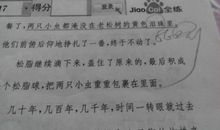 17 · 得分 登录 Jiao 全练
看了，两只小虫都淹没在老松树的黄色泪珠里。
他们前俯后仰地挣扎了一番，终于不动了。
松脂继续滴下来，盖住了原来的，最后积成
一个松脂球，把两只小虫重重包裹在里面。
几十年，几百年，几千年，时间一转眼就过去